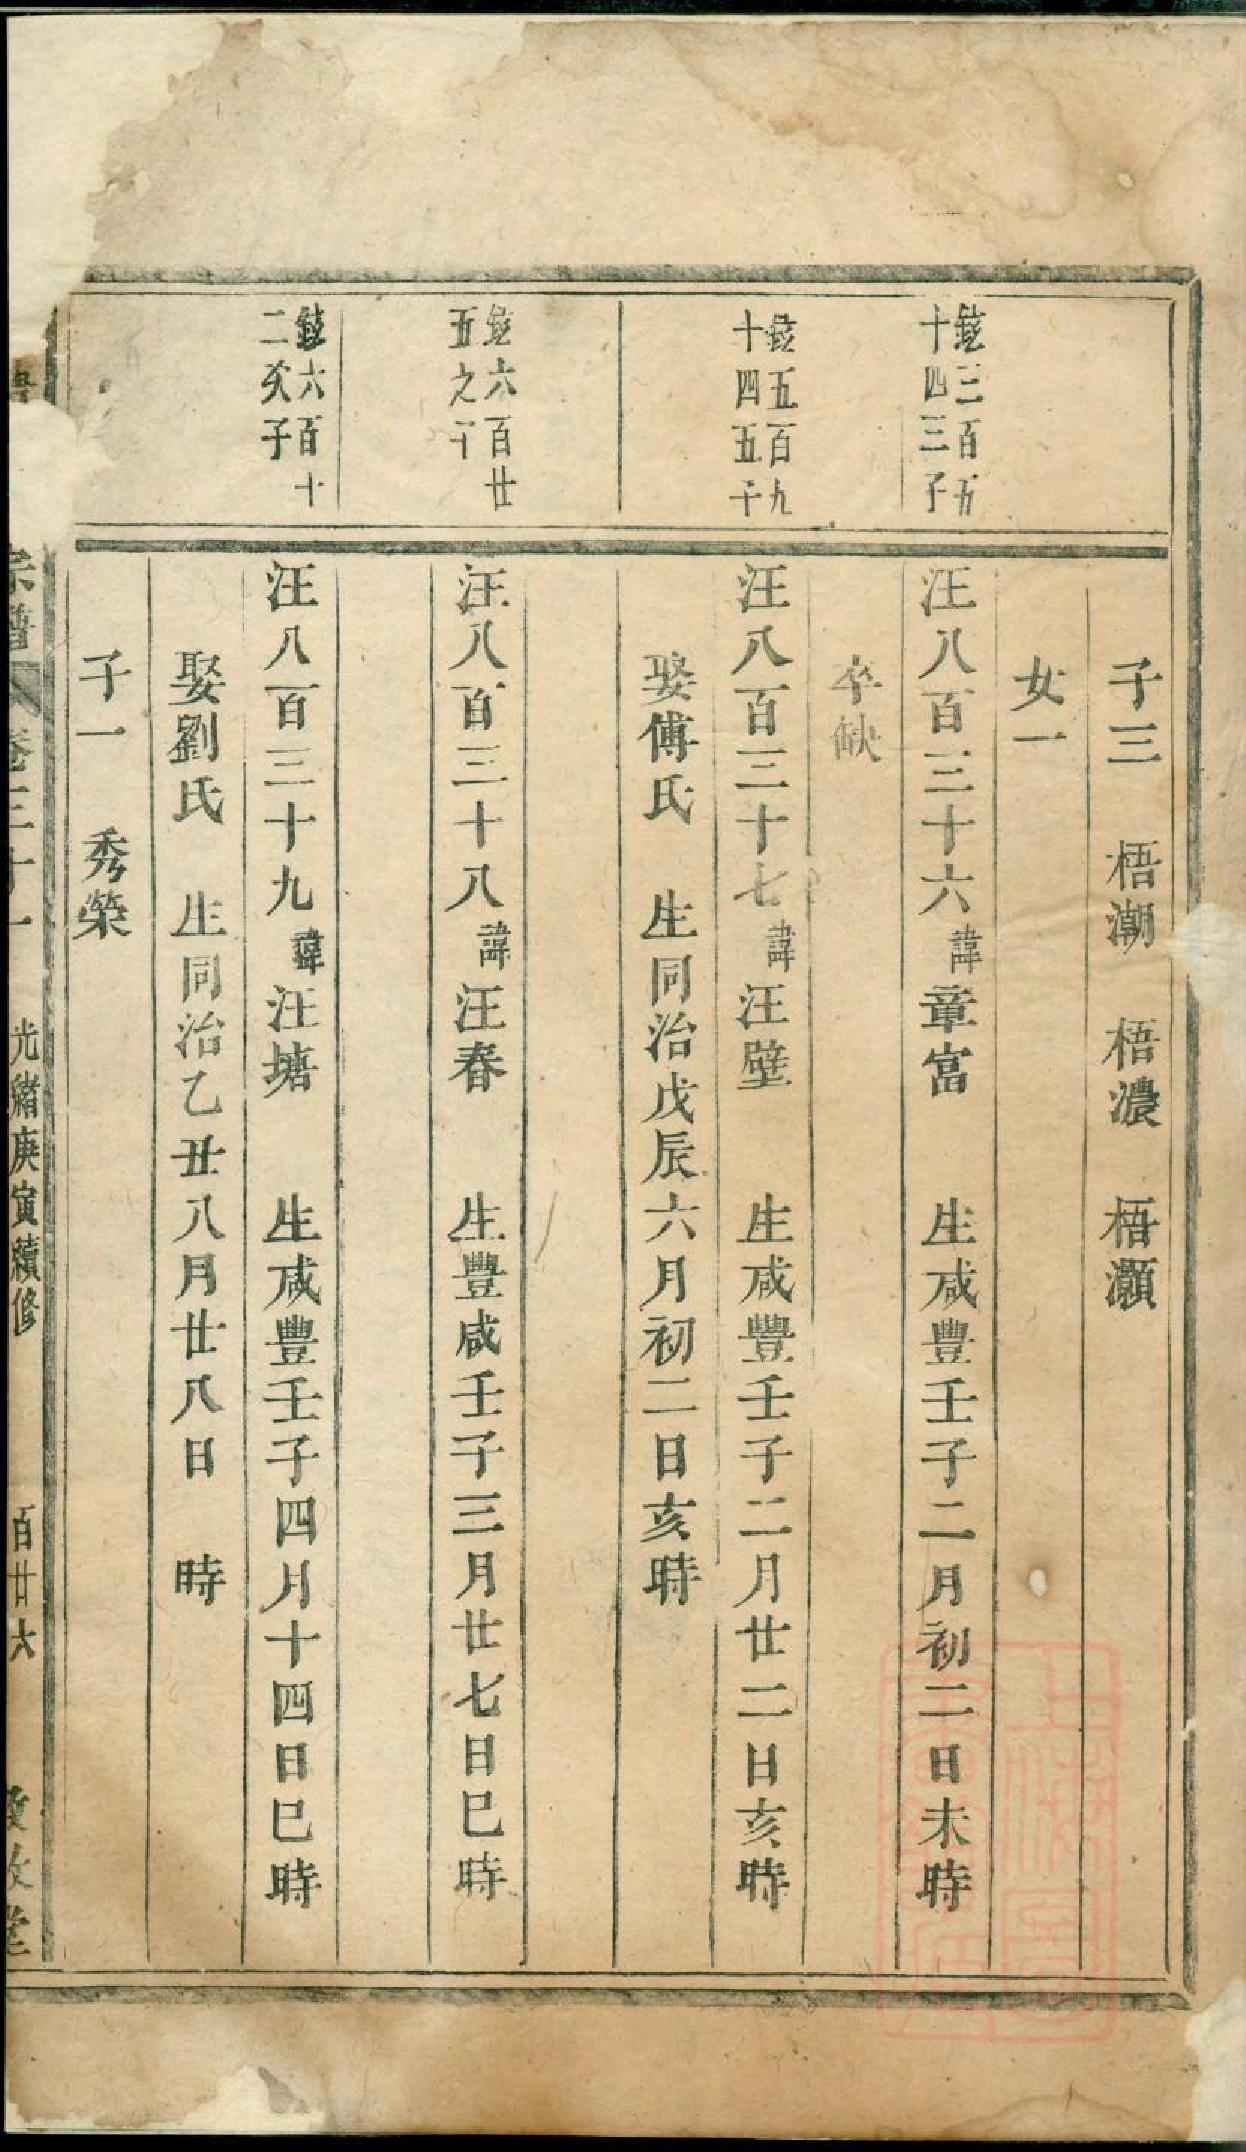 子三　梧潮　梧濃　梧灝
女一
鉉三百五
十四三子
汪八百三十六諱章富　生咸豐壬子二月初二日未時
卒缺
鉉五百九
十四五子
汪八百三十七諱汪壁　生咸豐壬子二月廿二日亥時
娶傅氏　生同治戊辰六月初二日亥時
鉉六百廿
五之子
汪八百三十八諱汪春　生豐咸壬子三月廿七日巳時
鉉六百十
二次子
汪八百三十九諱汪塘　生咸豐壬子四月十四日巳時
娶劉氏　生同治乙丑八月廿八日　時
子一　秀榮
宗譜　卷三十一　光緒庚寅續修　百廿六　敦敘堂